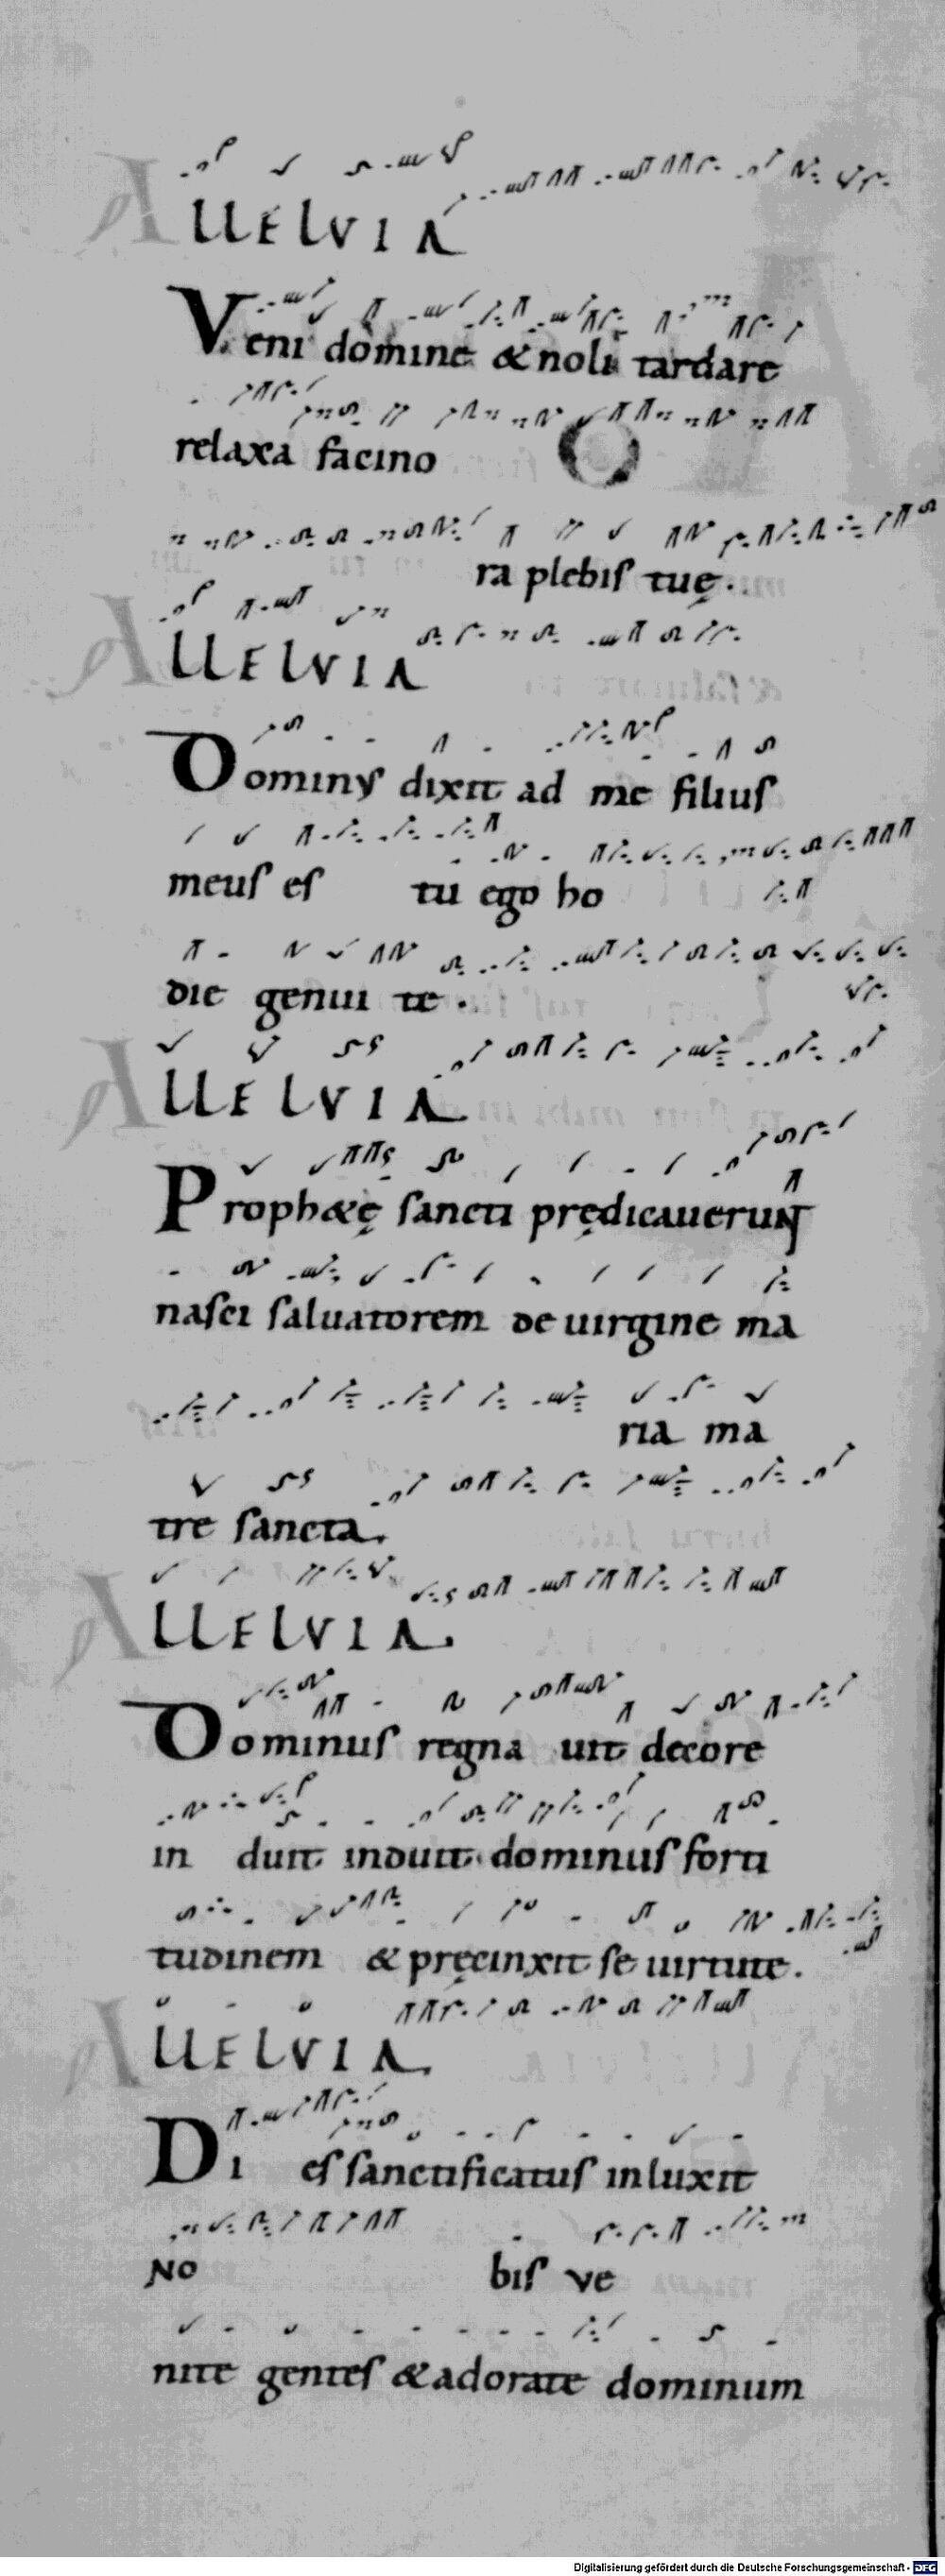 ALLELVIA
Veni domine & noli tardare
relaxa facino
ra plebiſ tuę.
ALLELVIA
Dominuſ dixit ad me filiuſ
meuſ eſ tu ego ho
die genui te.
ALLELVIA
Proph&ę ſancti prędicauerunt
naſci ſaluatorem de uirgine ma
ria ma
tre ſancta.
ALLELVIA.
Dominuſ regna uit decore
in duit induit dominuſ forti
tudinem & pręcinxit ſe uirtute.
ALLELVIA.
Di eſ ſanctificatuſ inluxit
No biſ ve
nite genteſ & adorate dominum
Digitalisierung gefördert durch die Deutsche Forschungsgemeinschaft - DFG